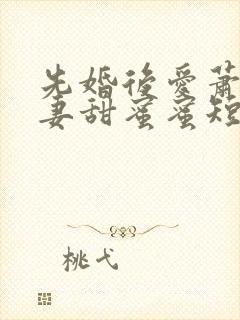 先婚後愛蕭
妻甜蜜蜜短
桃弋